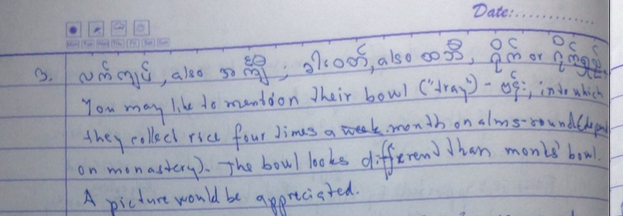 Date:
3. လက်ကျပ်, also အင်္ကျီ; ခါးဝတ်, also ထဘီ, ဝိုက် or
You may like to mention their bowl ("tray") - ဗန်း, into which
they collect rice four times a week month on alms-round (depend
on monastery). The bowl looks different than monks' bowl.
A picture would be appreciated.